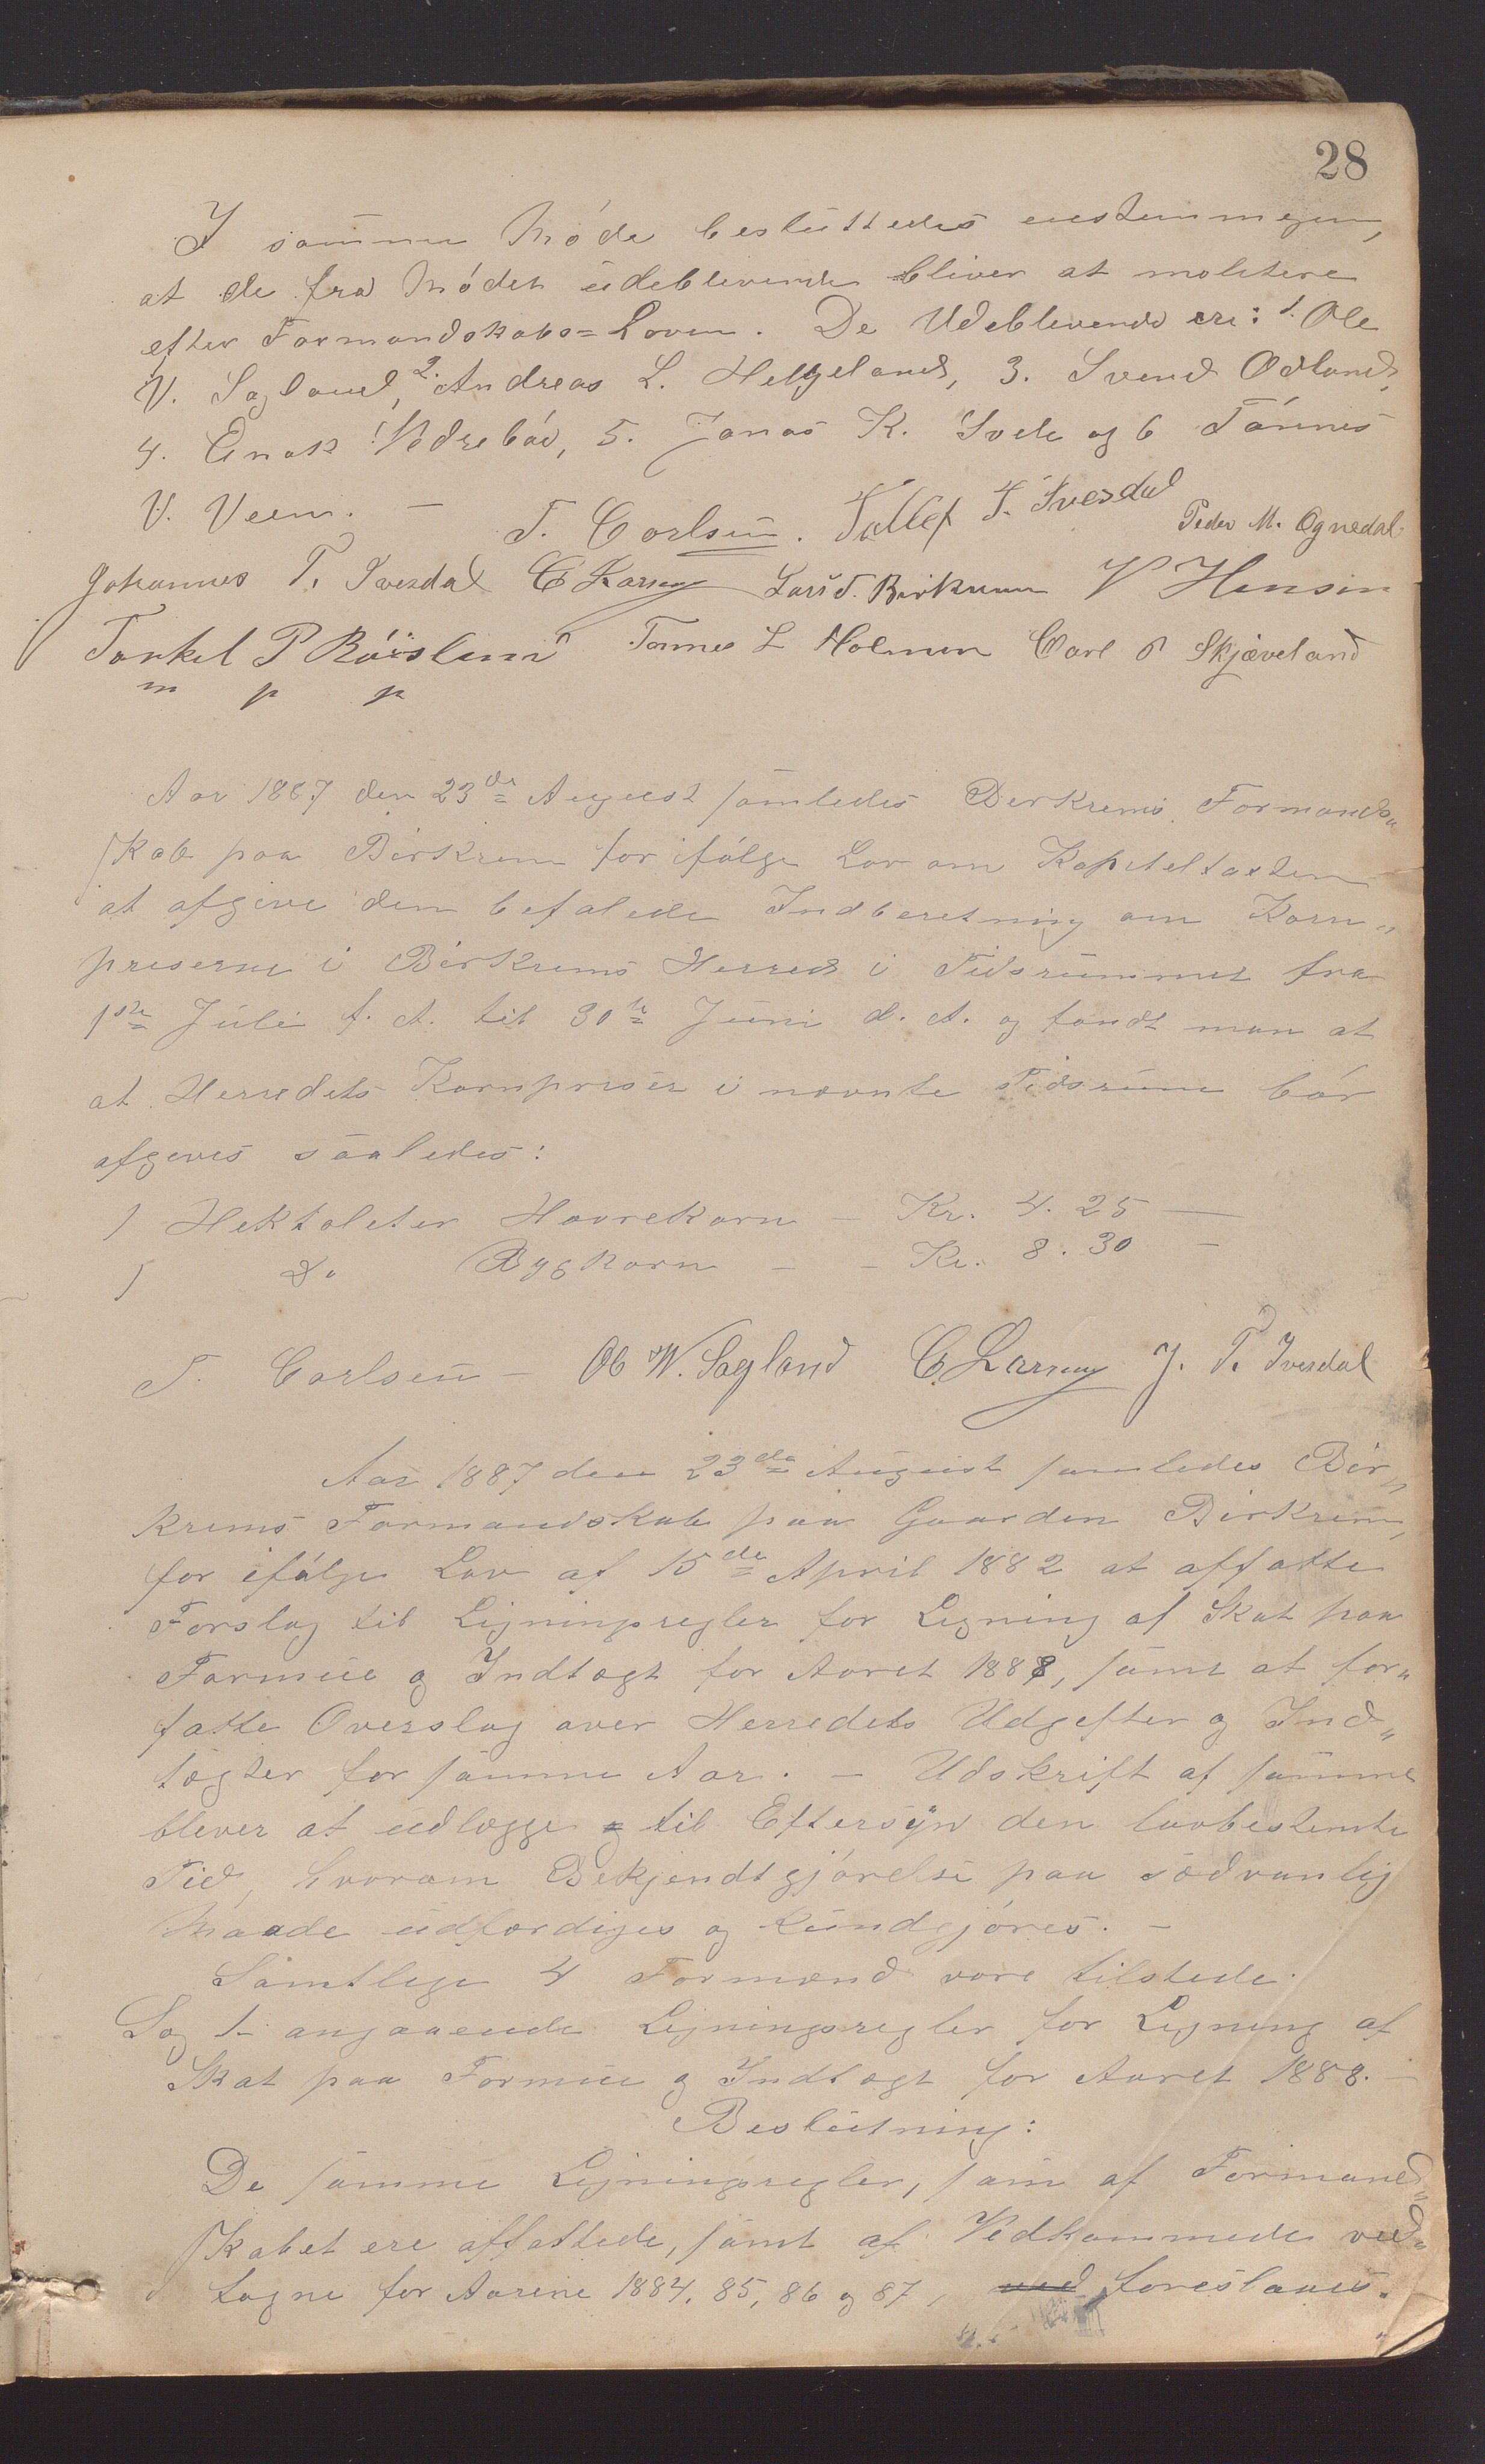 28
I samme Møde besluttedes eenstemmigen,
at de fra Mødet udeblevende bliver at molctere
efter Formandskabs=Loven. De Udeblevende ere: 1. Ole
V. Sagland, 2. Andreas L. Helgeland, 3. Svend Ødland,
4. Enok Vedrebøe, 5. Jonas K. Svele og 6 Tønnes
V. Veen. —
T. Carlsen. Tollef T. Ivesdal Peder M. Ognedal
Johannes T. Ivesdal C Larsen Lars T. Birkrem V Hansen
Torkel P Røisland Tønnes L Holmen Carl O Skjæveland
m p p
Aar 1887 den 23de August samledes Birkrems Formands„
skab paa Birkrem for ifølge Lov om Kapiteltaxten
at afgive den befalede Indberetning om Korn„
priserne i Birkrems Herred i Tidsrummet fra
1ste Juli f. A. til 30te Juni d. A. og fandt man at
at Herredets Kornpriser i nævnte Tidsrum bør
afgives saaledes:
1 Hektoliter Havrekorn — Kr. 4. 25 —
1 do Bygkorn — — Kr. 8. 30 —
T. Carlsen — Ole W. Sagland C Larsen J. T. Ivesdal
Aar 1887 den 23de August samledes Bir„
krems Formandskab paa Gaarden Birkrem,
for ifølge Lov af 15de April 1882 at affatte
Forslag til Ligningsregler for Ligning af Skat paa
Formue og Indtægt for Aaret 1888, samt at for„
fatte Overslag over Herredets Udgifter og Ind„
tægter for samme Aar. — Udskrift af samme
bliver at udlægge til Eftersyn den lovbestemte
Tid, hvorom Bekjendtgjørelse paa sædvanlig
Maade udfærdiges og kundgjøres. —
Samtlige 4 Formænd vare tilstede.
Sag 1. angaaende Ligningsregler for Ligning af
Skat paa Formue og Indtægt for Aaret 1888. —
Beslutning:
De samme Ligningsregler, som af Formand„
skabet ere affattede, samt af Vedkommede ved„
tagne for Aarene 1884, 85, 86 og 87, ved foreslaaes.